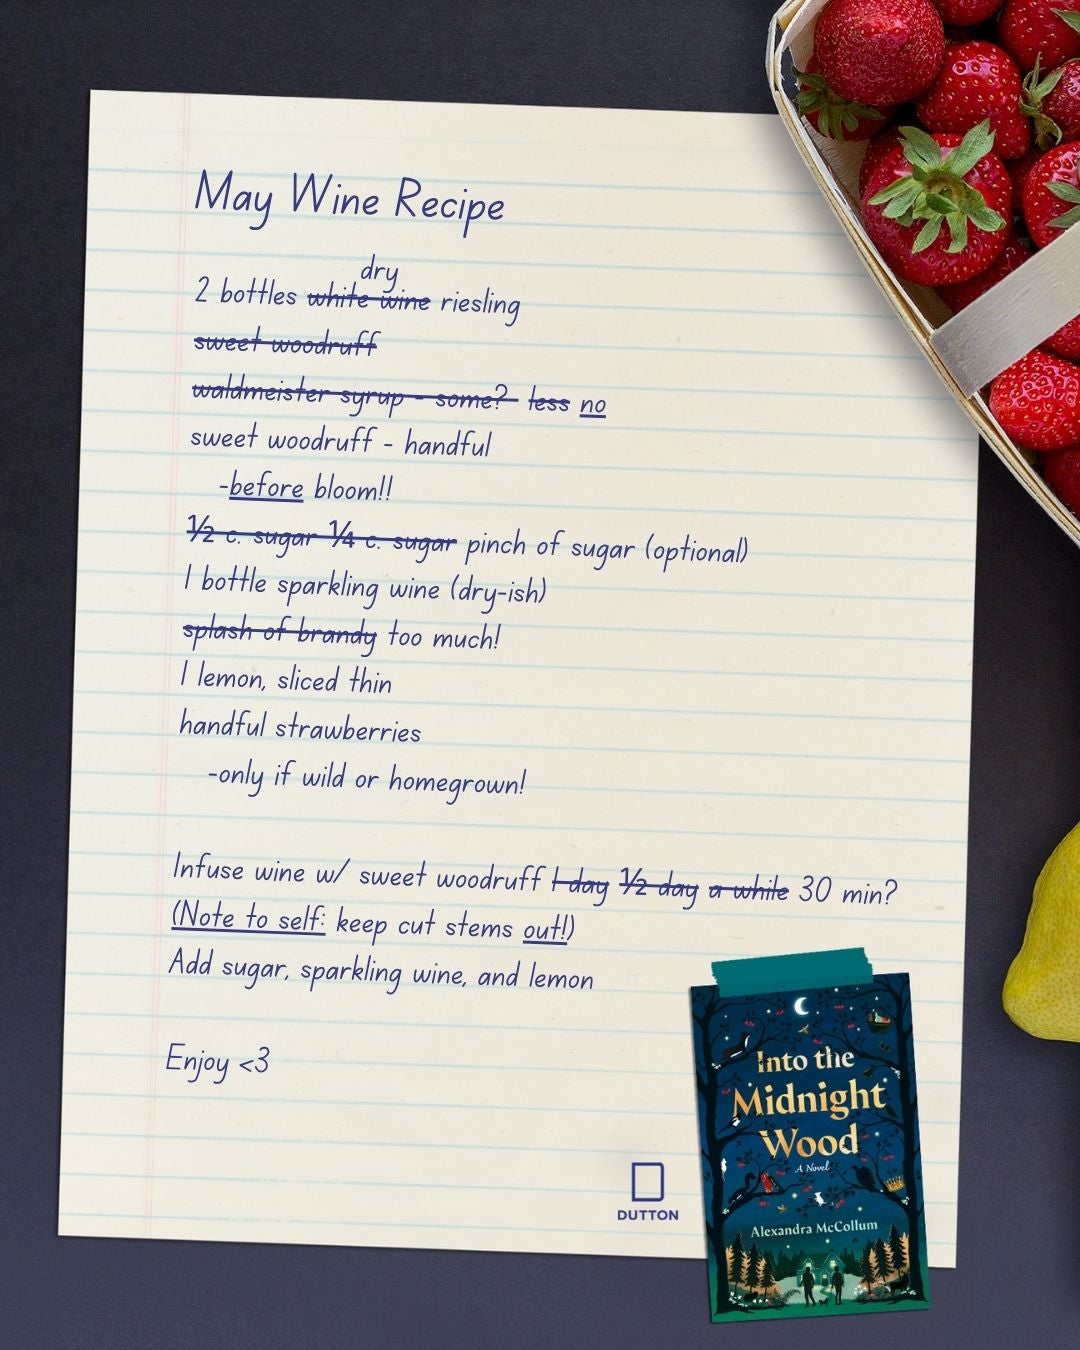 May Wine Recipe
dry
2 bottles white wine riesling
sweet woodruff
waldmeister syrup - some? less no
sweet woodruff - handful
-before bloom!!
½ c. sugar ¼ c. sugar pinch of sugar (optional)
1 bottle sparkling wine (dry-ish)
splash of brandy too much!
1 lemon, sliced thin
handful strawberries
-only if wild or homegrown!
Infuse wine w/ sweet woodruff 1 day ½ day a while 30 min?
(Note to self: keep cut stems out!)
Add sugar, sparkling wine, and lemon
Enjoy <3
DUTTON
Into the
Midnight
Wood
A Novel
Alexandra McCollum